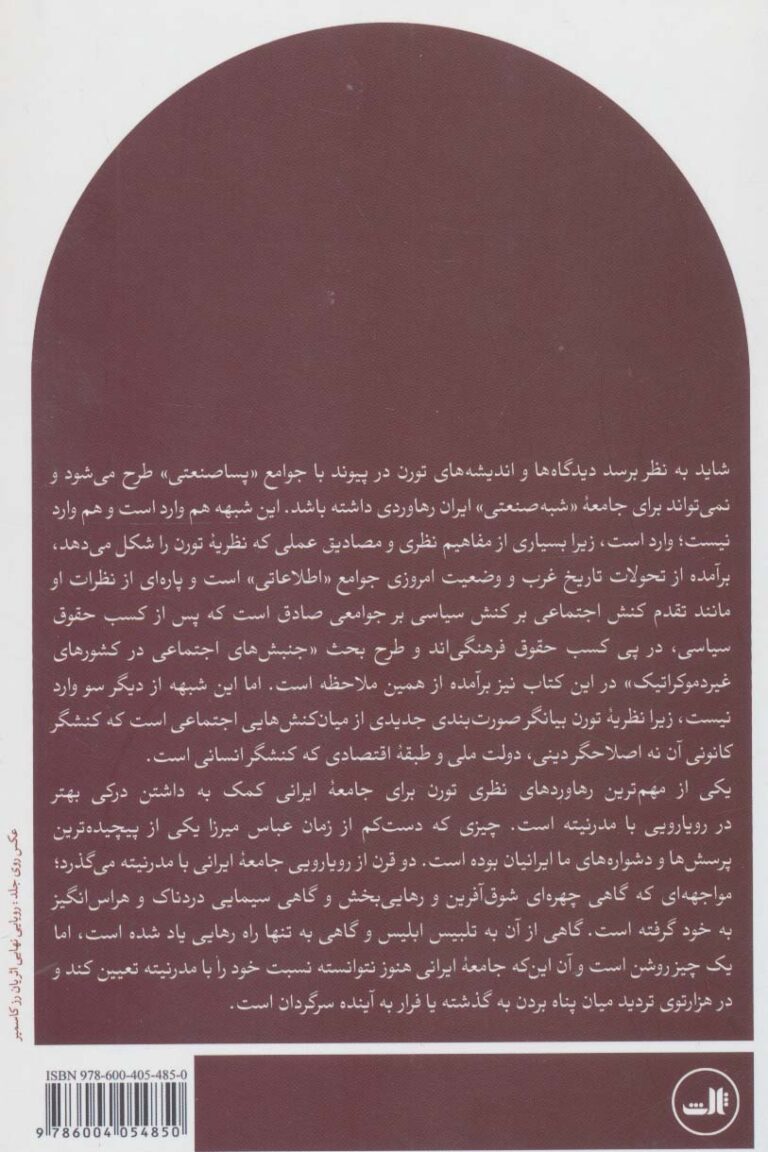 شاید به نظر برسد دیدگاه‌ها و اندیشه‌های تورن در پیوند با جوامع «پساصنعتی» طرح می‌شود و
نمی‌تواند برای جامعهٔ «شبه‌صنعتی» ایران رهاوردی داشته باشد. این شبهه هم وارد است و هم وارد
نیست؛ وارد است، زیرا بسیاری از مفاهیم نظری و مصادیق عملی که نظریهٔ تورن را شکل می‌دهد،
برآمده از تحولات تاریخ غرب و وضعیت امروزی جوامع «اطلاعاتی» است و پاره‌ای از نظرات او
مانند تقدم کنش اجتماعی بر کنش سیاسی بر جوامعی صادق است که پس از کسب حقوق
سیاسی، در پی کسب حقوق فرهنگی‌اند و طرح بحث «جنبش‌های اجتماعی در کشورهای
غیردموکراتیک» در این کتاب نیز برآمده از همین ملاحظه است. اما این شبهه از دیگر سو وارد
نیست، زیرا نظریهٔ تورن بیانگر صورت‌بندی جدیدی از میان‌کنش‌هایی اجتماعی است که کنشگر
کانونی آن نه اصلاحگر دینی، دولت ملی و طبقهٔ اقتصادی که کنشگر انسانی است.
یکی از مهم‌ترین رهاوردهای نظری تورن برای جامعهٔ ایرانی کمک به داشتن درکی بهتر
در رویارویی با مدرنیته است. چیزی که دست‌کم از زمان عباس میرزا یکی از پیچیده‌ترین
پرسش‌ها و دشواره‌های ما ایرانیان بوده است. دو قرن از رویارویی جامعهٔ ایرانی با مدرنیته می‌گذرد؛
مواجهه‌ای که گاهی چهره‌ای شوق‌آفرین و رهایی‌بخش و گاهی سیمایی دردناک و هراس‌انگیز
به خود گرفته است. گاهی از آن به تلبیس ابلیس و گاهی به تنها راه رهایی یاد شده است، اما
یک چیز روشن است و آن این‌که جامعهٔ ایرانی هنوز نتوانسته نسبت خود را با مدرنیته تعیین کند و
در هزارتوی تردید میان پناه بردن به گذشته یا فرار به آینده سرگردان است.
عکس روی جلد: رویایی نهایی اثر یان رز کاسمیر
ISBN 978-600-405-485-0
9 786004 054850
ثالث